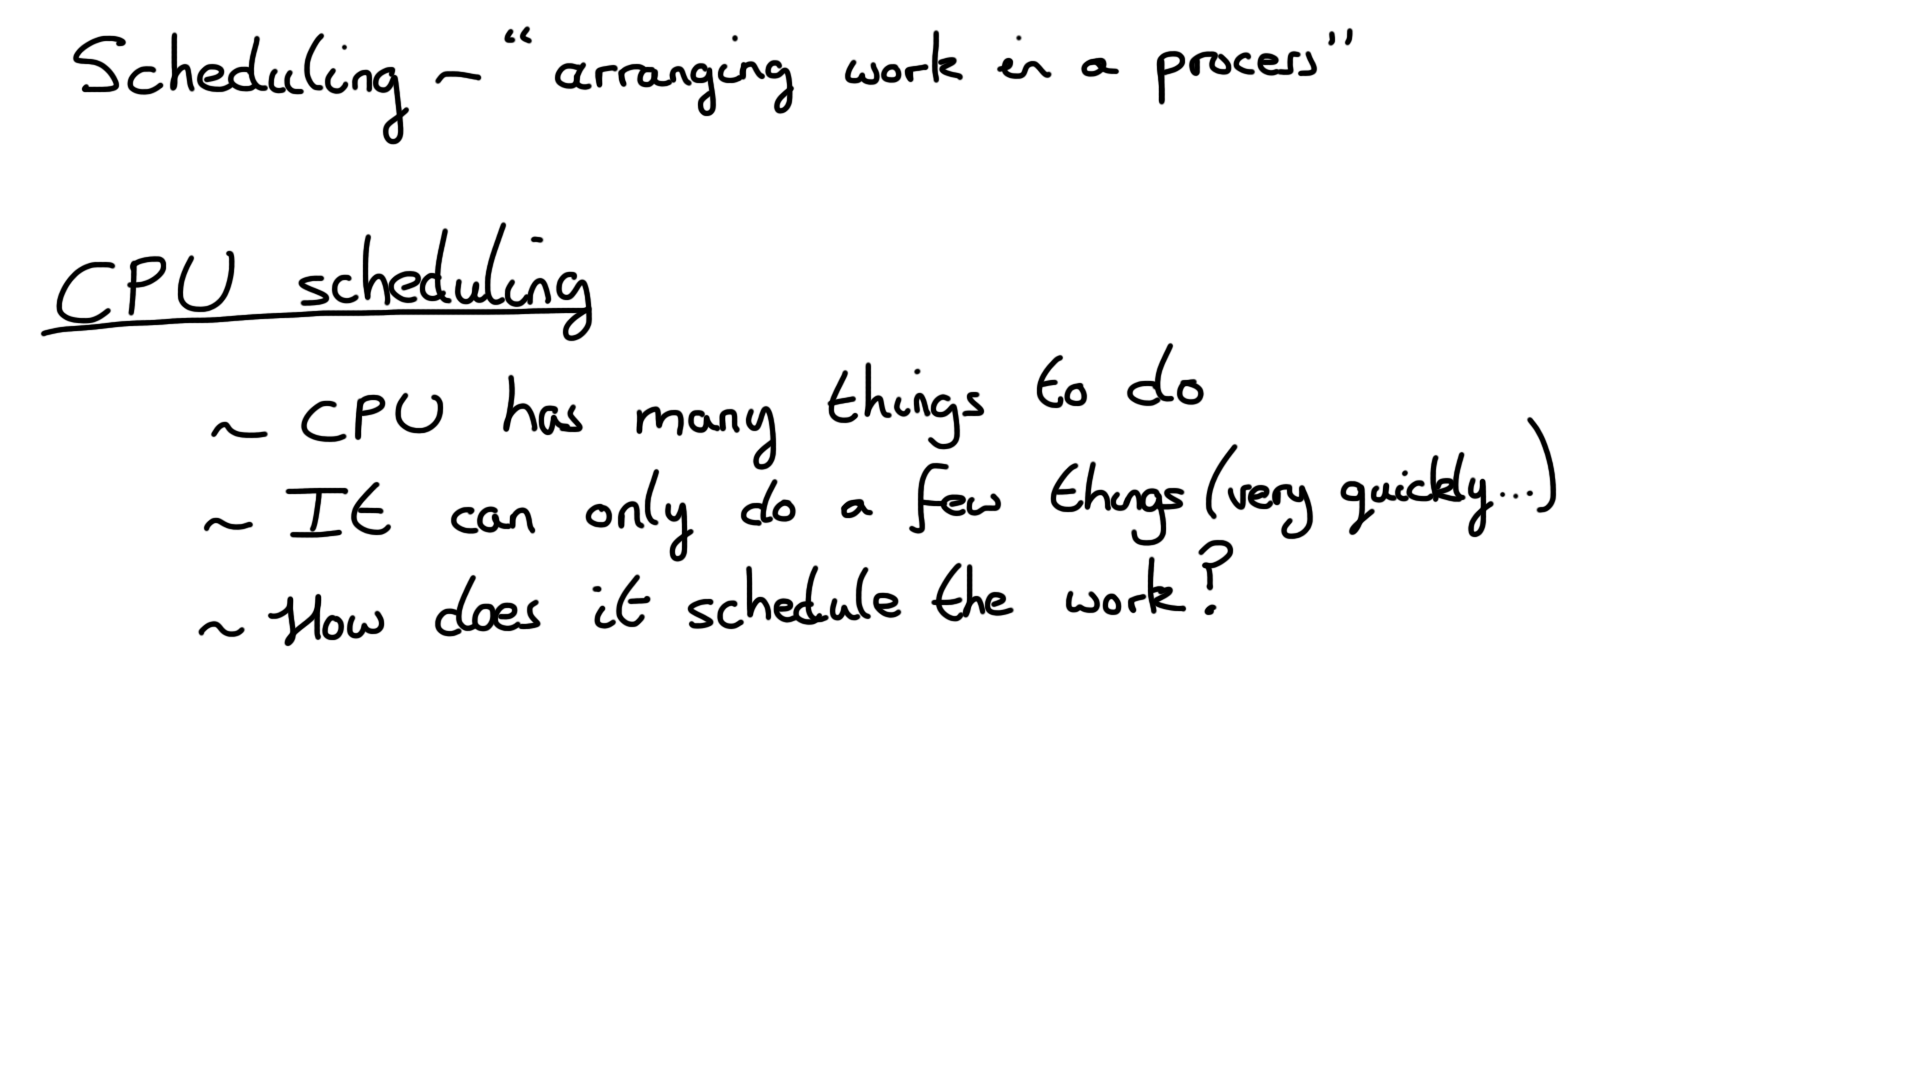 Scheduling ~ "arranging work in a process"
CPU scheduling
~ CPU has many things to do
~ It can only do a few things (very quickly...)
~ How does it schedule the work?